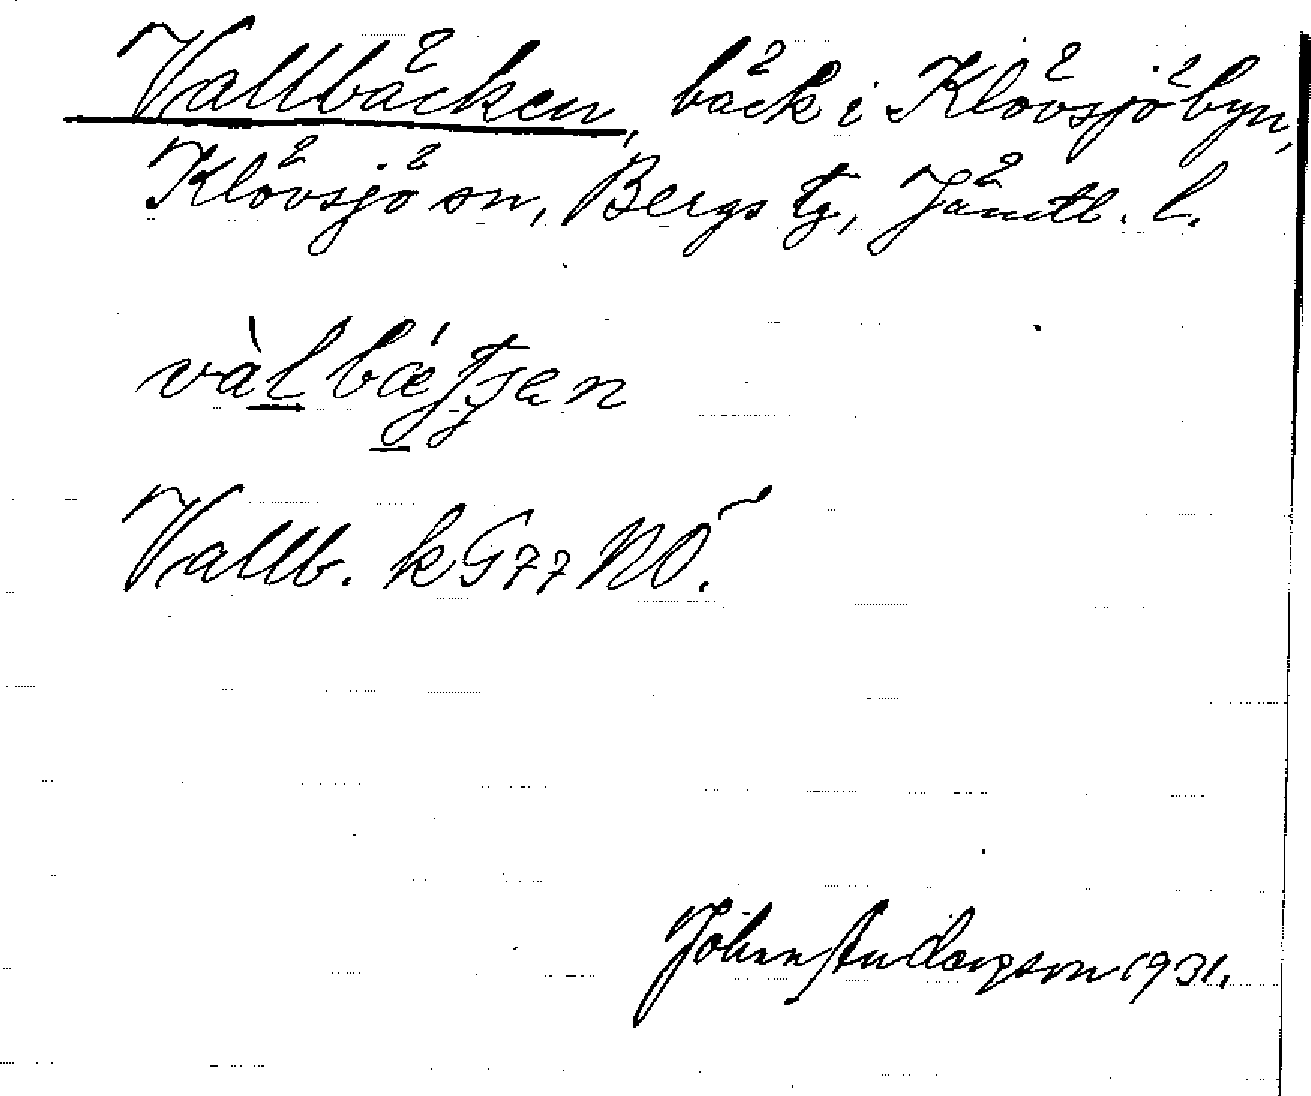 Vallbäcken, bäck i Klövsjöbyn,
Klövsjö sn, Bergs tg, Jämtl. l.
Vallb. kG77NÖ.
John Andersson 1931.